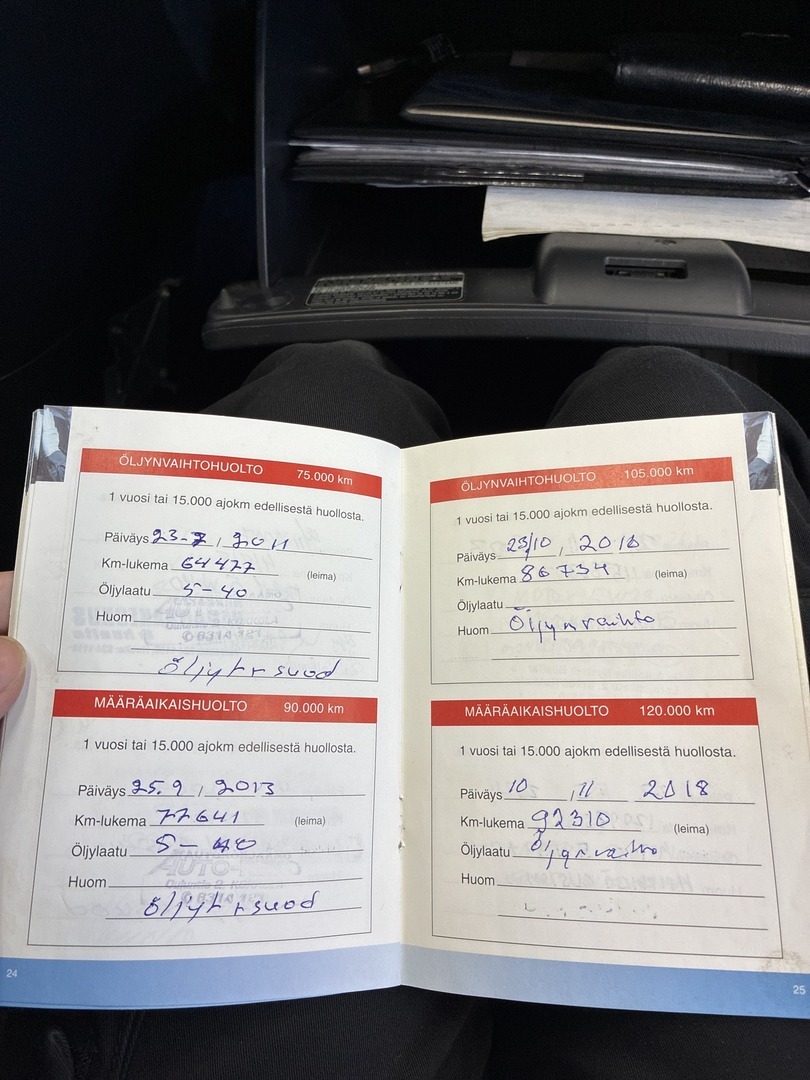 ÖLJYNVAIHTOHUOLTO 75.000 km
1 vuosi tai 15.000 ajokm edellisestä huollosta.
Päiväys 23.7, 2011
Km-lukema 64477 (leima)
Öljylaatu 5-40
Huom
öljyt + suod
MÄÄRÄAIKAISHUOLTO 90.000 km
1 vuosi tai 15.000 ajokm edellisestä huollosta.
Päiväys 25.9, 2013
Km-lukema 77641 (leima)
Öljylaatu 5-40
Huom
öljyt + suod
24
ÖLJYNVAIHTOHUOLTO 105.000 km
1 vuosi tai 15.000 ajokm edellisestä huollosta.
Päiväys 23/10, 2016
Km-lukema 86734 (leima)
Öljylaatu
Huom Öljynvaihto
MÄÄRÄAIKAISHUOLTO 120.000 km
1 vuosi tai 15.000 ajokm edellisestä huollosta.
Päiväys 10, 11 2018
Km-lukema 92310 (leima)
Öljylaatu Öljynvaihto
Huom
25